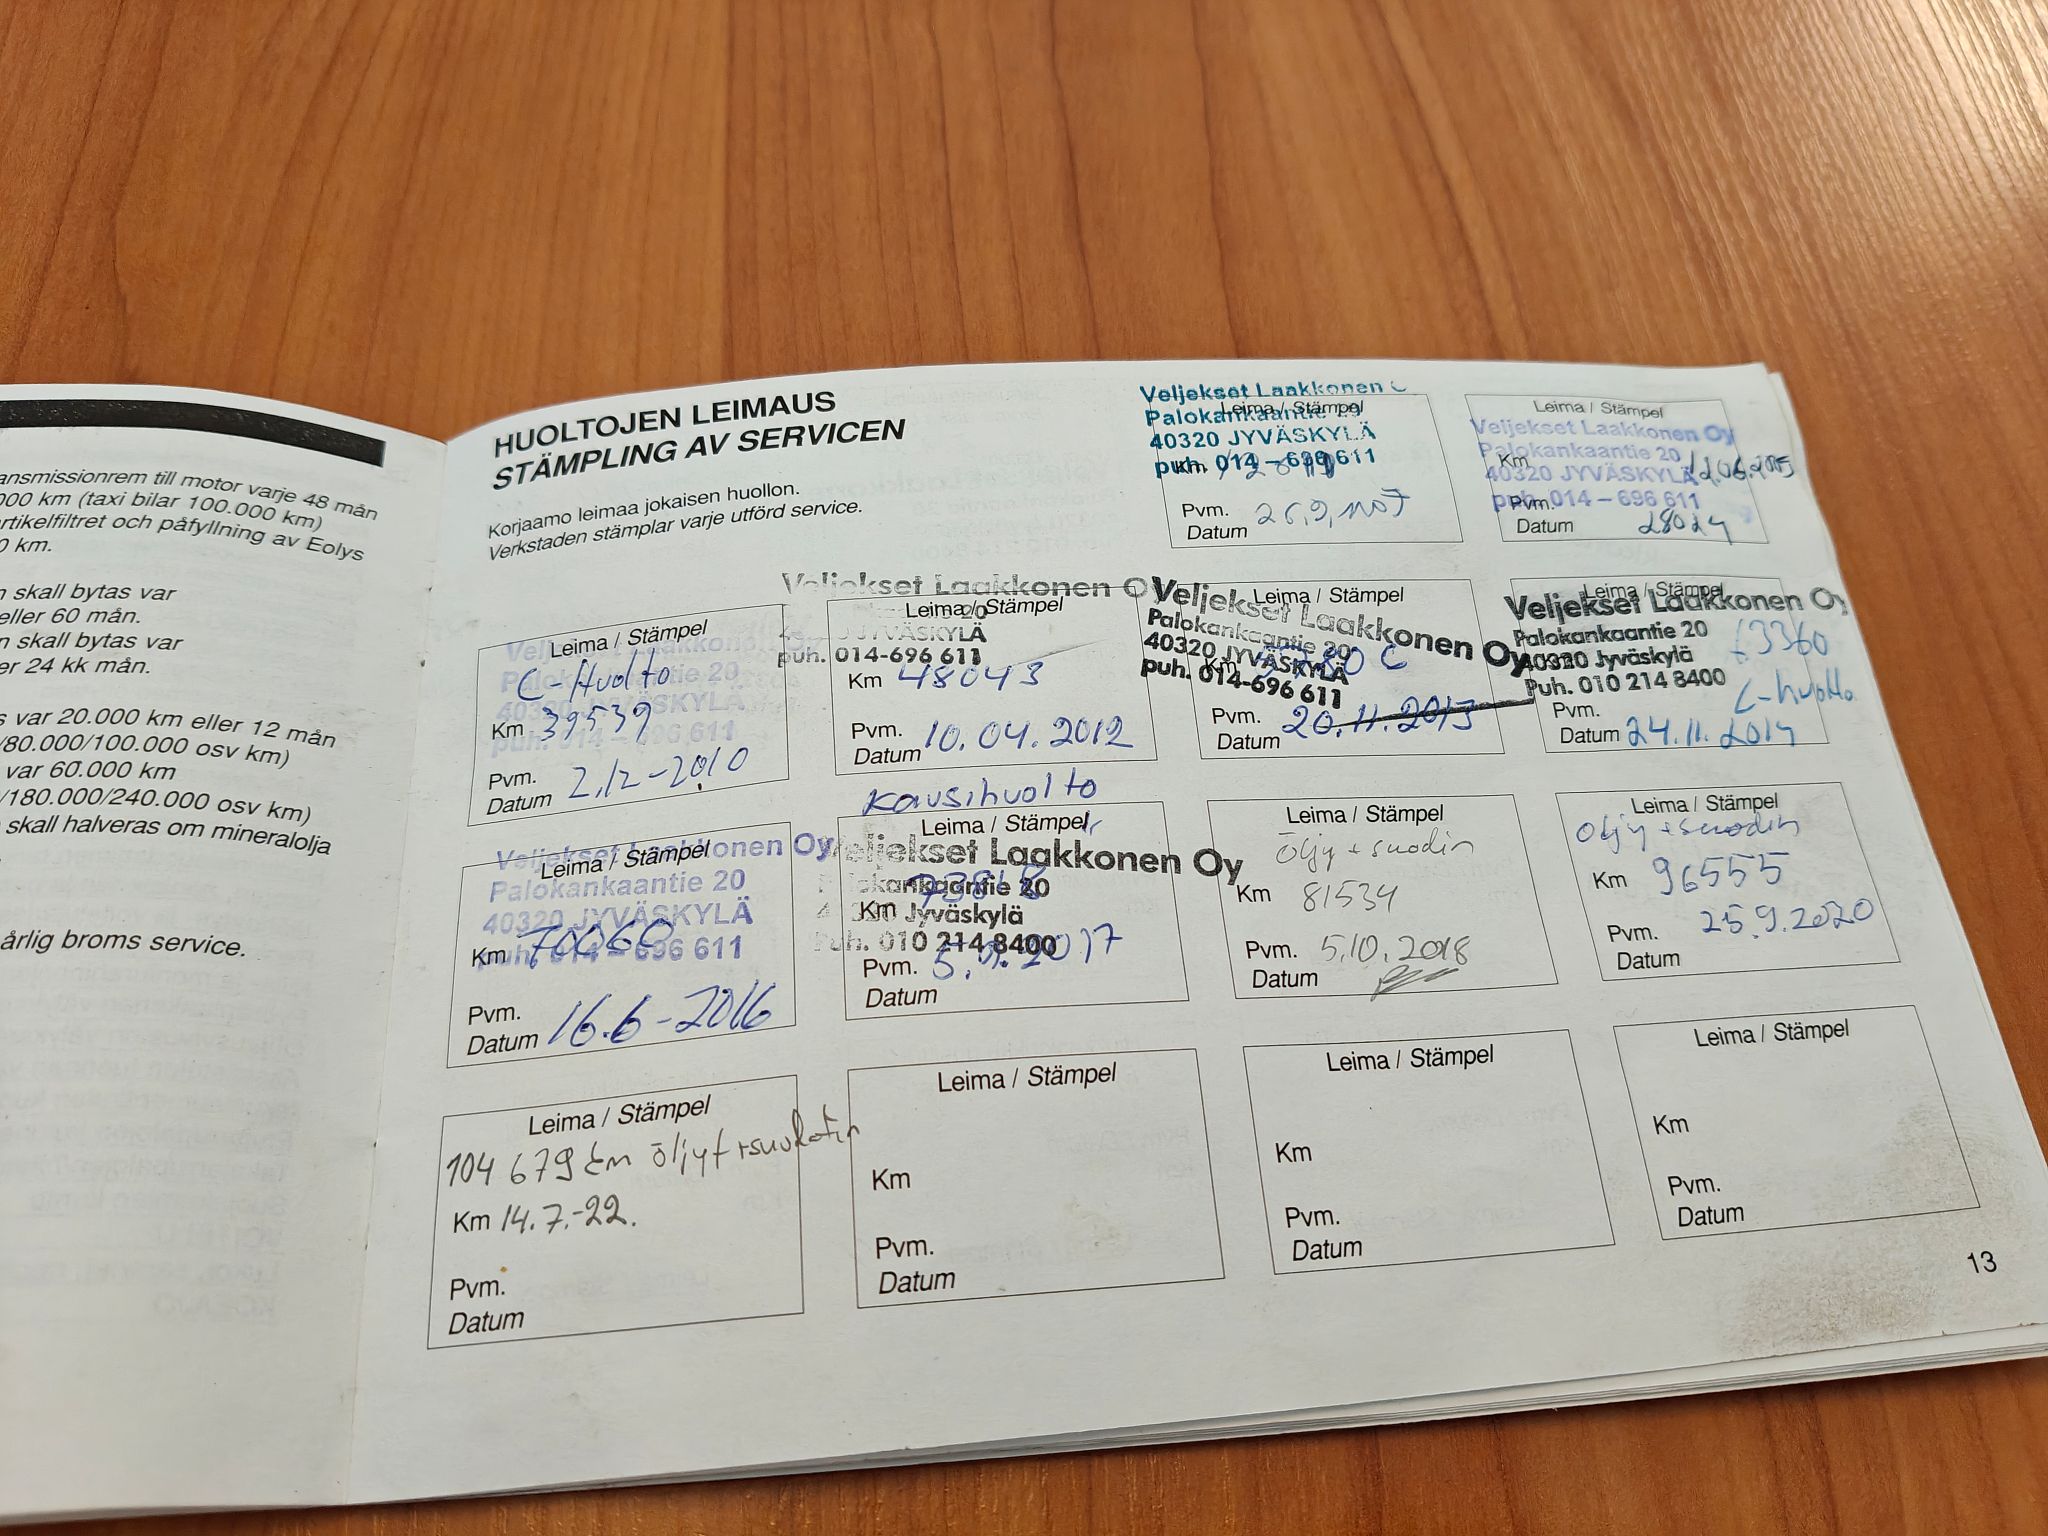 ansmissionrem till motor varje 48 mån
000 km (taxi bilar 100.000 km)
artikelfiltret och påfyllning av Eolys
0 km.
n skall bytas var
eller 60 mån.
n skall bytas var
er 24 kk mån.
s var 20.000 km eller 12 mån
/80.000/100.000 osv km)
var 60.000 km
/180.000/240.000 osv km)
skall halveras om mineralolja
årlig broms service.
HUOLTOJEN LEIMAUS
STÄMPLING AV SERVICEN
Korjaamo leimaa jokaisen huollon.
Verkstaden stämplar varje utförd service.
Veljekset Laakkonen
Leima / Stämpel
Palokankaantie 20
40320 JYVÄSKYLÄ
puh. 014 – 696 611
Km
Pvm.
Datum
Leima / Stämpel
Veljekset Laakkonen Oy
Palokankaantie 20
40320 JYVÄSKYLÄ
Km
puh. 014 – 696 611
Pvm.
Datum 28024
Leima / Stämpel
Veljekset Laakkonen
Palokankaantie 20
C-Huolto
40320 JYVÄSKYLÄ
Km 39539
puh. 014 – 696 611
Pvm.
Datum 2.12-2010
Veljekset Laakkonen Oy
Leima / Stämpel
JYVÄSKYLÄ
puh. 014-696 611
Km 48043
Pvm.
Datum 10.04.2012
Leima / Stämpel
Veljekset Laakkonen Oy
Palokankaantie 20
40320 JYVÄSKYLÄ
Km
puh. 014-696 611
Pvm.
Datum 20.11.2013
Leima / Stämpel
Veljekset Laakkonen Oy
Palokankaantie 20
63360
40320 Jyväskylä
Km
Puh. 010 214 8400
C-huolto
Pvm.
Datum 24.11.2014
Leima / Stämpel
Veljekset Laakkonen Oy
Palokankaantie 20
40320 JYVÄSKYLÄ
Km 70060
puh. 014 – 696 611
Pvm.
Datum 16.6-2016
Kausihuolto
Leima / Stämpel
Veljekset Laakkonen Oy
Palokankaantie 20
Km
Jyväskylä
Puh. 010 214 8400
Pvm.
Datum
Leima / Stämpel
öljy + suodin
Km 81534
Pvm. 5.10.2018
Datum
Leima / Stämpel
öljy + suodin
Km 96555
Pvm. 25.9.2020
Datum
Leima / Stämpel
104 679 km öljyt + suodatin
Km 14.7.-22.
Pvm.
Datum
Leima / Stämpel
Km
Pvm.
Datum
Leima / Stämpel
Km
Pvm.
Datum
Leima / Stämpel
Km
Pvm.
Datum
13